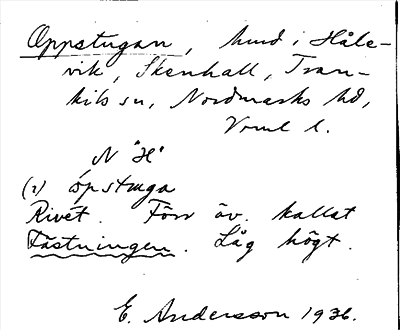 Oppstugan, hmd i Håle-
vik, Skenhall, Tran-
kils sn, Nordmarks hd,
Vrml l.
N "H"
(2) òpstuga
Rivet. Förr äv. kallat
Fästningen. Låg högt.
E. Andersson 1936.